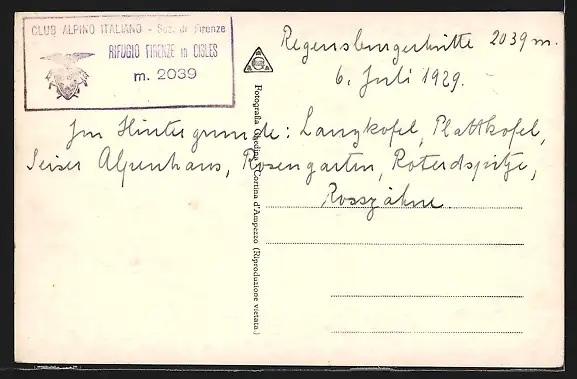 CLUB ALPINO ITALIANO - Sez. di Firenze
RIFUGIO FIRENZE in CISLES
m. 2039
Regensburgerhütte 2039 m.
6. Juli 1929.
Im Hintergrunde: Langkofel, Plattkofel,
Seiser Alpenhaus, Rosengarten, Roterdspitze,
Rosszähne.
Fotografia Ghedina - Cortina d'Ampezzo (Riproduzione vietata.)